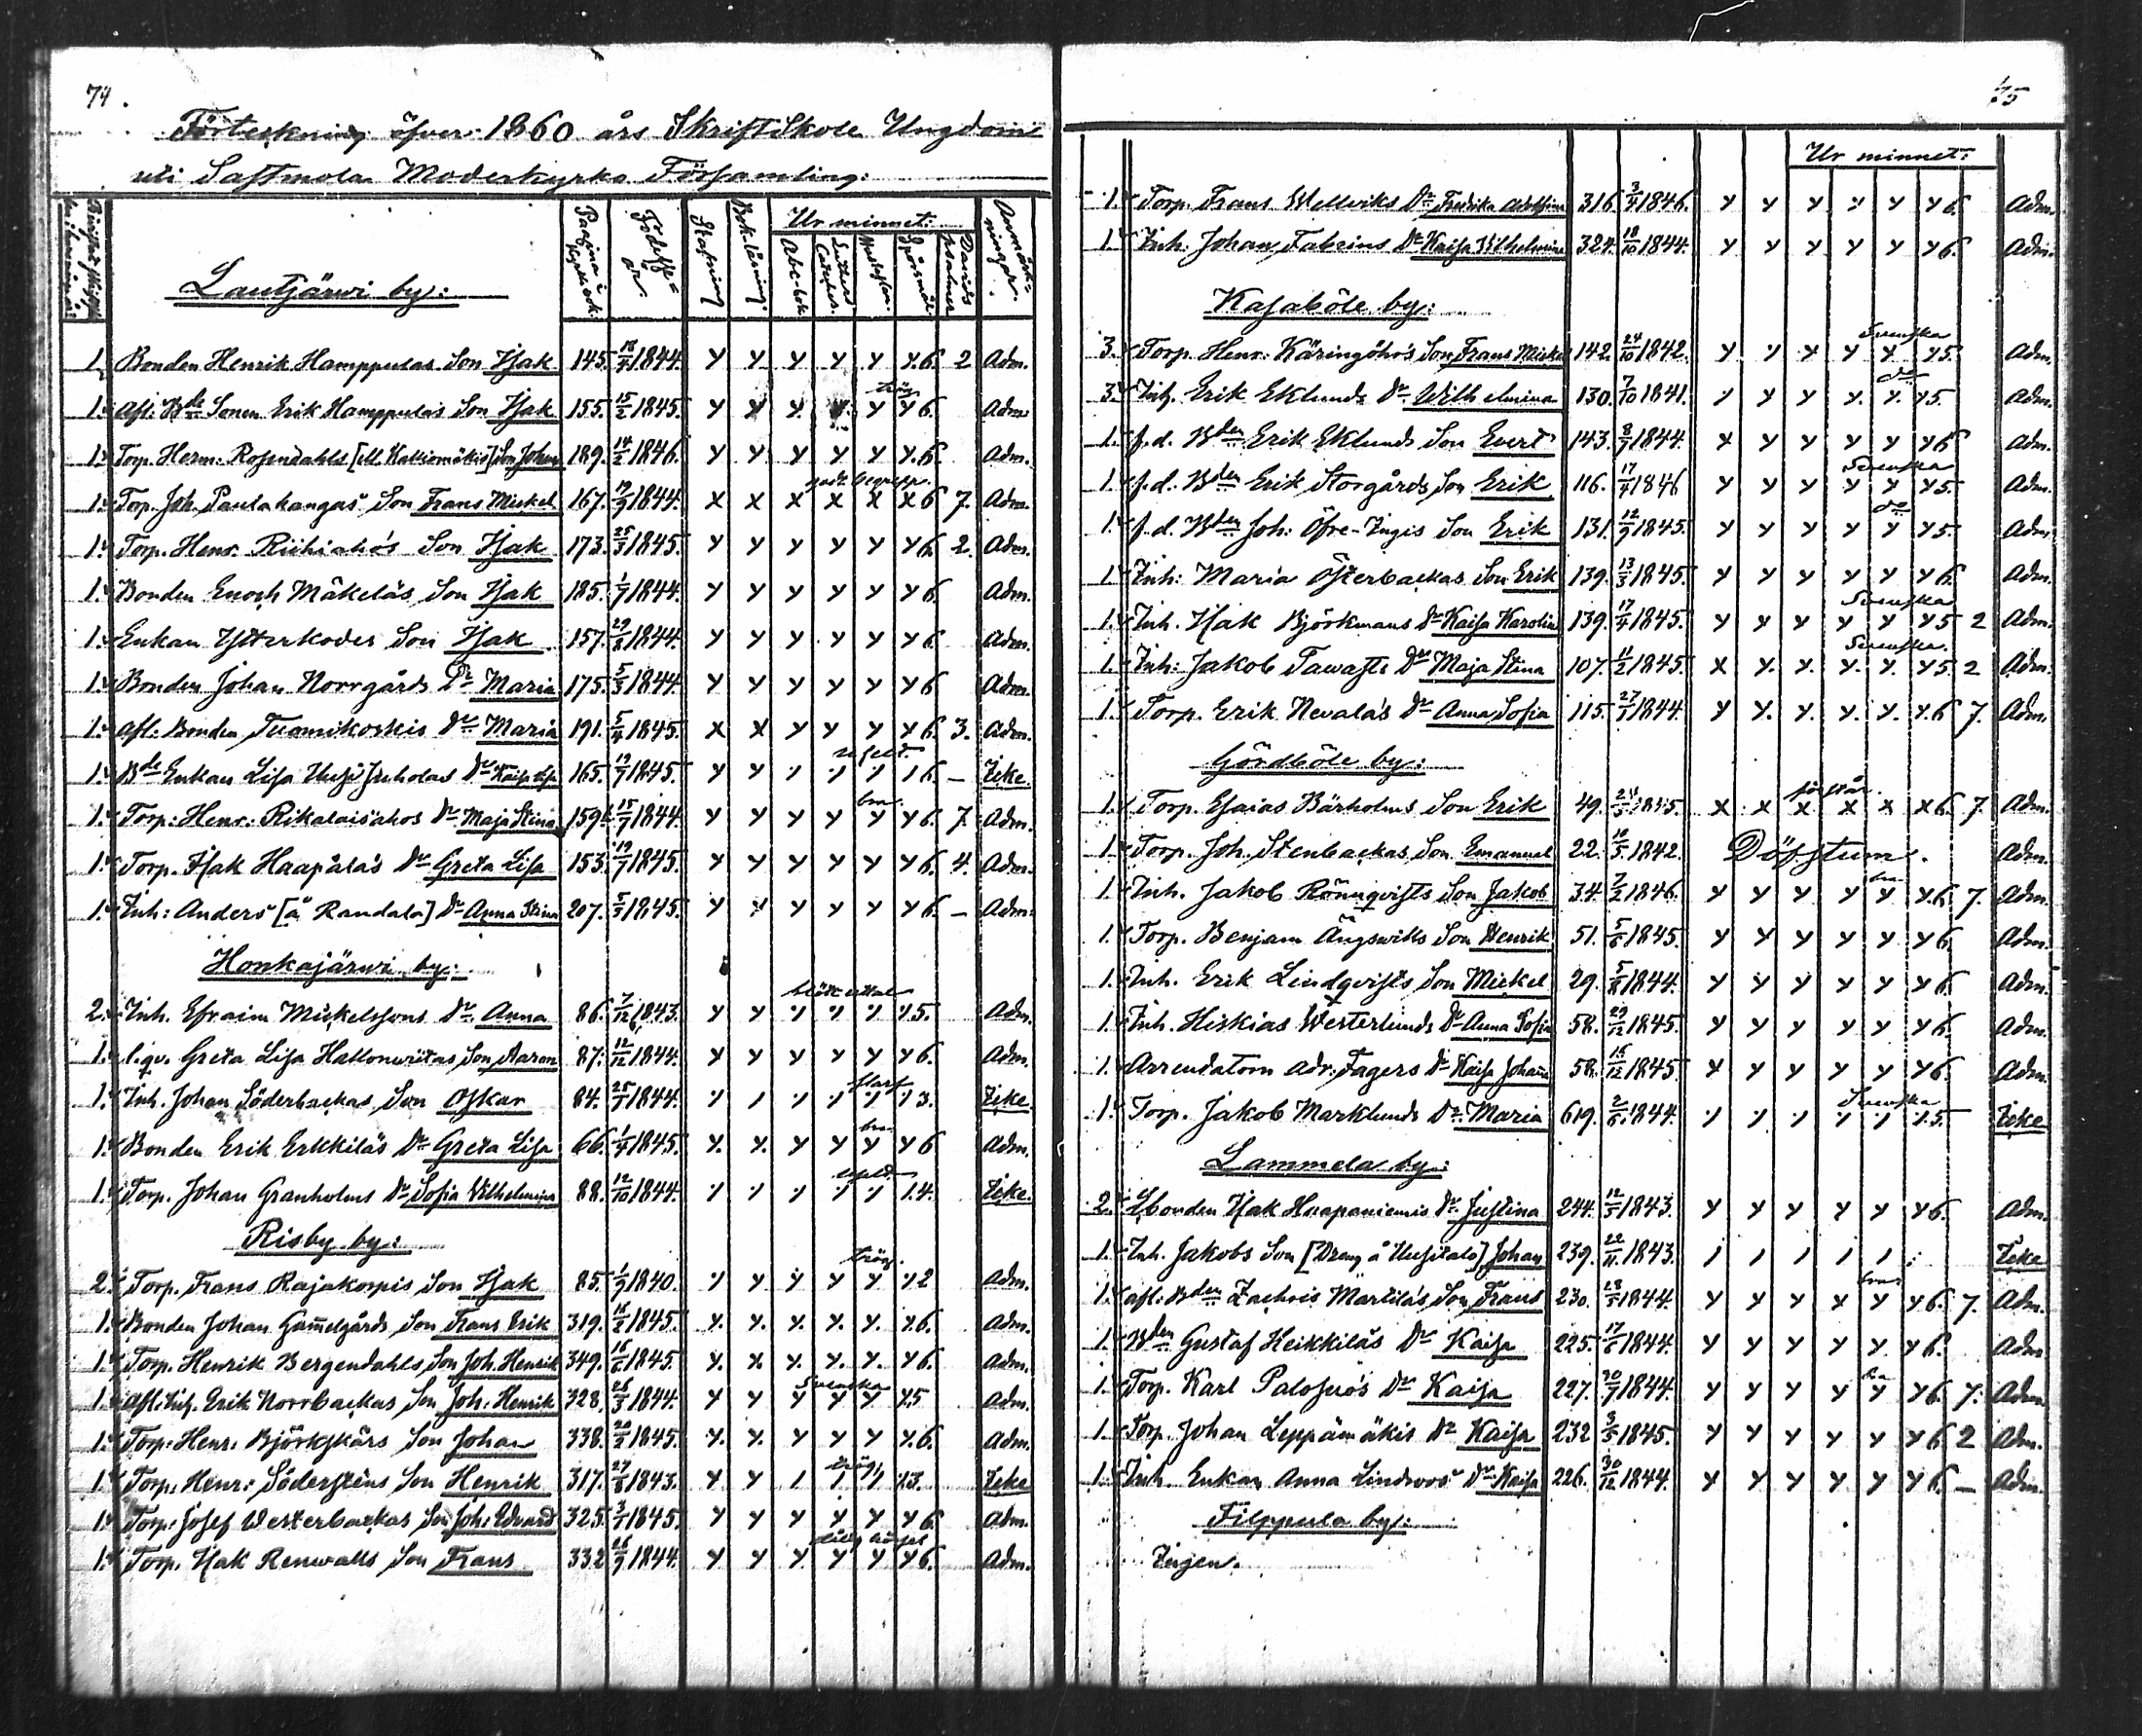 74.
Förteckning öfver 1860 års Skriftskole Ungdom
uti Sastmola Moderkyrko Församling:
Pagina i Kyrkbok. Födelse-år. Stafning Bok-läsning Ur minnet: Abc-bok Lutheri Cateches. Spörsmål Davids psalmer Anmärk-ningar.
Lautjärwi by:
1. Bonden Henrik Hamppulas Son Isak 145. 18/9 1844. Y Y Y Y Y Y.6. 2 Adm.
trög
1. Afl: Bde Sonen Erik Hamppulas Son Isak 155. 15/2 1845. Y Y Y Y Y Y 6. Adm.
1. Torp. Herm: Rosendahls [ell Kalliomäkis] Son Johan 189. 14/2 1846. Y Y Y Y Y Y.6. Adm.
godt begrepp.
1. Torp. Joh. Pautakangas Son Frans Mickel 167. 19/9 1844. X X X X X X 6 7. Adm.
1. Torp. Henr. Riihiaho's Son Isak 173. 25/3 1845. Y Y Y Y Y Y 6. 2. Adm.
1. Bonden Enoch Mäkeläs Son Isak 185. 1/7 1844. Y Y Y Y Y Y 6. Adm.
1. Enkan Ylterkodes Son Isak 157. 29/8 1844. Y Y Y Y Y Y 6. Adm.
1. Bonden Johan Norrgårds Dr Maria 175. 5/3 1844. Y Y Y Y Y Y 6 Adm.
1. Afl: Bonden Tuomikoskis Dr Maria 191. 5/4 1845. X X Y Y Y Y 6. 3. Adm.
1. Bde Enkan Lisa Uusi Juholas Dr Kaisa Lisa 165. 19/7 1845. Y Y 6. — Icke.
bra.
1. Torp: Henr: Rikalaisahos Dr Maja Stina 159. 15/7 1844. Y Y Y Y Y Y 6. 7. Adm.
1. Torp. Isak Haapalas Dr Greta Lisa 153. 19/7 1845. Y Y Y Y Y Y 6. 4. Adm.
1. Inh: Anders [å Randala] Dr Anna Stina 207. 5/5 1845. Y Y Y Y Y Y 6. — Adm.
Honkajärwi by:
2. Inh. Efraim Mickelssons Dr Anna 86. 7/12 1843. Y Y 5. Adm.
1. Greta Lisa Son Aaron 87. 12/12 1844. Y Y Y Y Y Y 6. Adm.
1. Inh. Johan Söderbackas Son Oskar 84. 25/7 1844. 3. Icke.
bra
1. Bonden Erik Erkkiläs Dr Greta Lisa 66. 1/4 1845. Y. Y. Y Y Y Y 6 Adm.
1. Torp. Johan Granholms Dr Sofia Wilhelmina 88. 12/10 1844. 4. Icke.
Risby by:
trög.
2. Torp. Frans Rajakorpis Son Isak 85. 1/9 1840. Y Y Y Y 2 Adm.
1. Bonden Johan Gam̄elgårds Son Frans Erik 319. 16/2 1845. Y. Y. Y. Y. Y. Y.6. Adm.
1. Torp. Henrik Bergendahls Son Joh. Henrik 349. 16/6 1845. Y. Y. Y. Y. Y. Y 6. Adm.
Svenska
1. Afl: Inh. Erik Norrbackas Son Joh. Henrik 328. 26/3 1844. Y Y Y Y Y Y.5 Adm.
1. Torp: Henr: Björkskärs Son Johan 338. 20/2 1845. Y. Y. Y Y Y Y.6. Adm.
trög
1. Torp: Henr: Söderstens Son Henrik 317. 27/8 1843. Y Y 3. Icke
1. Torp: Josef Westerbackas Son Joh: Edvard 325. 3/7 1845. Y Y Y Y Y Y 6. Adm.
1. Torp. Isak Renwalls Son Frans 332 26/7 1844. Y Y Y Y Y Y 6. Adm.
75
Ur minnet:
1. Torp. Frans Wellviks Dr Fredrika 316. 3/4 1846. Y Y Y Y Y Y 6. Adm.
1. Inh: Johan Fabrins Dr Kaisa Wilhelmina 324. 18/10 1844. Y Y Y Y Y Y 6. Adm.
Kasaböle by:
Svenska
3. Torp. Henr: Käringöhrs Son Frans Mickel 142. 24/10 1842. Y Y Y Y Y Y 5. Adm.
do
3. Inh. Erik Eklunds Dr Wilhelmina 130. 7/10 1841. Y Y Y Y. Y. Y 5. Adm.
1. f.d. Bden Erik Eklunds Son Evert 143. 8/7 1844. Y Y Y Y Y Y 6 Adm.
Svenska
1. f.d. Bden Erik Storgårds Son Erik 116. 17/4 1846 Y Y Y Y Y Y 5. Adm.
do
1. f.d. Bden Joh: Öfre-Ingis Son Erik 131. 12/9 1845. Y Y Y Y Y Y 5. Adm.
1. Inh: Maria Österbackas Son Erik 139. 13/3 1845. Y Y Y Y Y Y 6. Adm.
Svenska
1. Inh. Isak Björkmans Dr Kaisa Karolin 139. 17/4 1845. Y Y Y Y Y Y 5 2 Adm.
Svenska
1. Inh: Jakob Tawasts Dr Maja Stina 107. 11/2 1845. X Y. Y. Y. Y. Y 5. 2 Adm.
1. Torp. Erik Nevalas Dr Anna Sofia 115. 27/1 1844. Y Y. Y. Y. Y. Y.6 7. Adm.
Gårdböle by:
förstår.
1. Torp. Esaias Bärholms Son Erik 49. 24/5 1845. X X X X X X 6. 7. Adm.
1. Torp. Joh. Stenbackas Son Emanuel 22. 10/5 1842. Döfstum. Adm.
bra
1. Inh. Jakob Rönnqvists Son Jakob 34. 7/2 1846. Y Y Y Y Y Y.6. 7. Adm.
1. Torp. Benjam Ängswiks Son Henrik 51. 5/6 1845. Y Y Y Y Y Y 6 Adm.
1. Inh. Erik Lindqvists Son Mickel 29. 5/8 1844. Y Y Y Y Y Y 6. Adm.
1. Inh. Hiskias Westerlunds Dr Anna Sofia 58. 29/12 1845. Y Y Y Y Y Y 6. Adm.
1. Arrendatorn Adr: Fagers Dr Kaisa Johanna 58. 16/12 1845. Y Y Y Y Y Y 6. Adm.
Svenska
1. Torp. Jakob Marklunds Dr Maria 619. 2/6 1844. 5. Icke
Lammela by:
2. Ebonden Isak Haapaniemis Dr Justina 244. 12/5 1843. Y Y Y Y Y Y 6. Adm.
1. Inh. Jakobs Son [Dreng å Uusitalo] Johan 239. 22/11 1843. Icke
bra
1. Afl: Bden Zachris Martilas Son Frans 230. 28/5 1844. Y Y Y Y Y Y 6. 7. Adm.
1. Bden Gustaf Heikkiläs Dr Kaisa 225. 17/6 1844. Y Y Y Y Y Y 6. Adm
bra
1. Torp. Karl Palosuo's Dr Kaisa 227. 30/7 1844. Y Y Y Y Y Y 6. 7. Adm.
1. Torp. Johan Leppämäkis Dr Kaisa 232 3/5 1845. Y Y Y Y Y Y 6 2 Adm.
1. Inh. Enkan Anna Lindroos Dr Kaisa 226. 30/12 1844. Y Y Y Y Y Y 6. — Adm.
Filppula by:
Ingen.